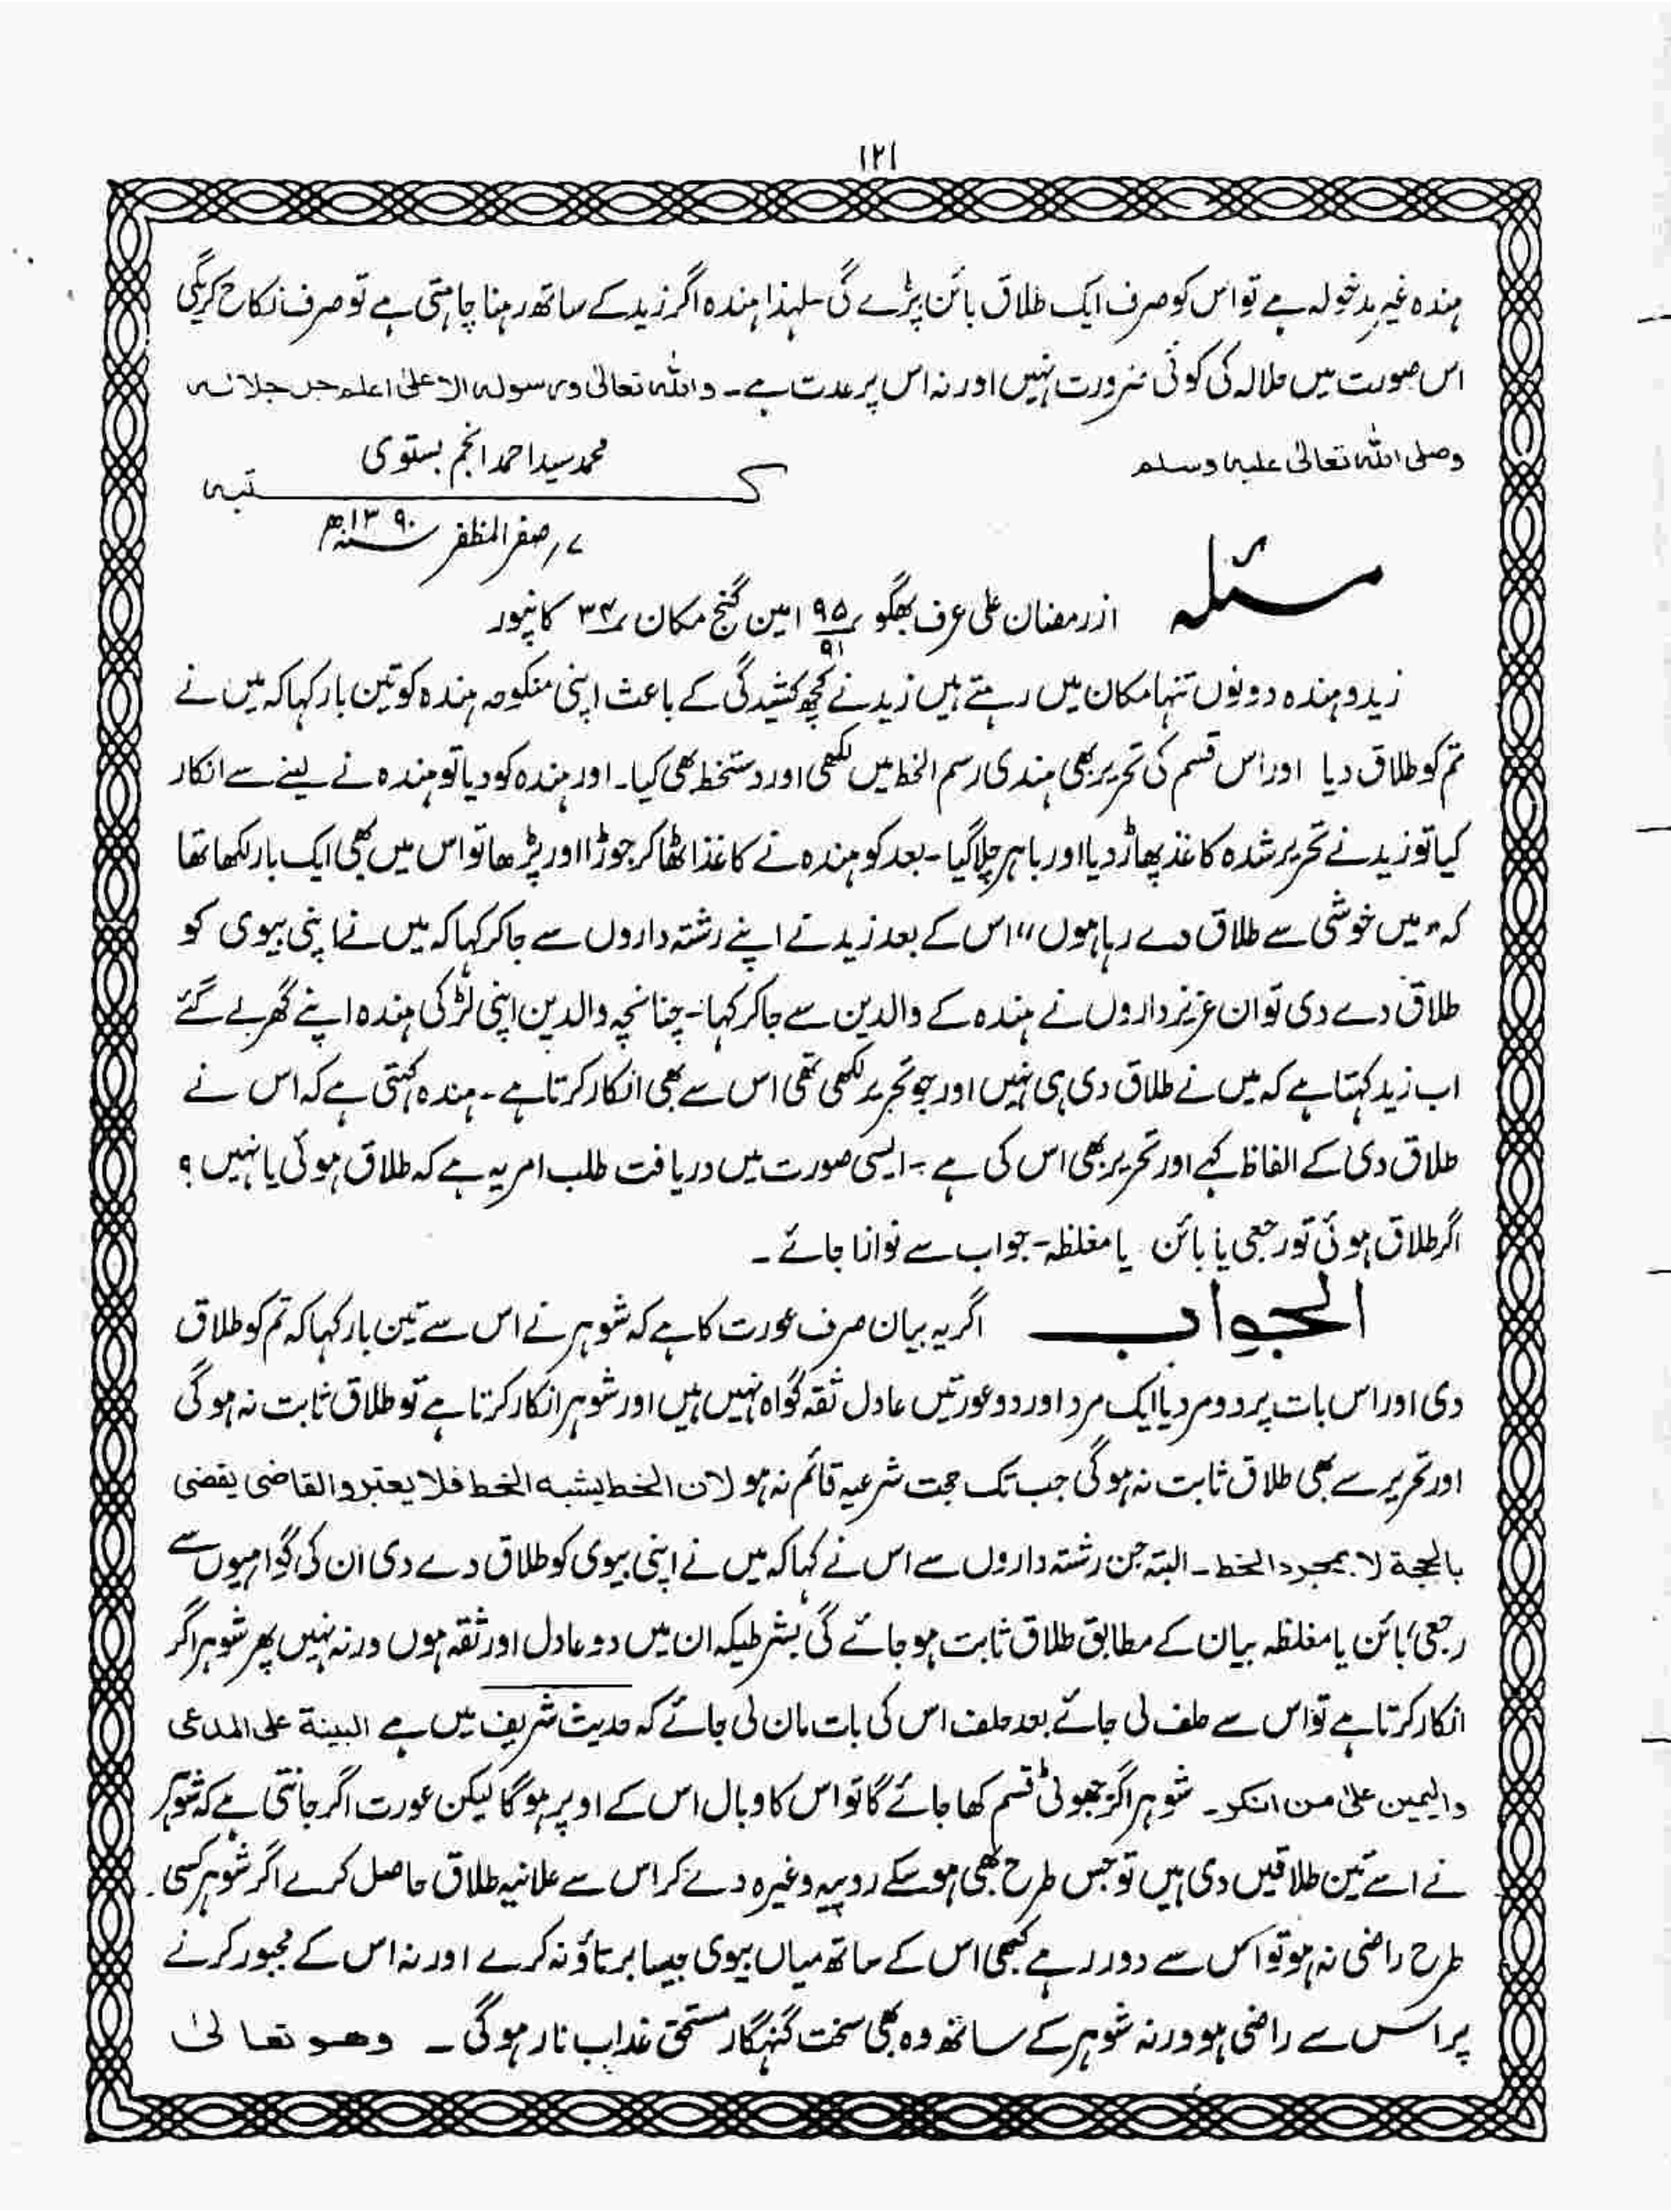 ۱۲۱
ہندہ غیر مدخولہ ہے تو اس کو صرف ایک طلاق بائن پڑے گی۔ لہذا ہندہ اگر زید کے ساتھ رہنا چاہتی ہے تو صرف نکاح کریگی
اس صورت میں حلالہ کی کوئی ضرورت نہیں اور نہ اس پر عدت ہے۔ واللہ تعالیٰ ورسولہ الاعلیٰ اعلم جل جلالہ
وصلی اللہ تعالیٰ علیہ وسلم
محمد سید احمد انجم بستوی
کتبہ
۷؍ صفر المظفر ۱۳۹۰ھ
مسئلہ از رمضان علی عرف بھگو ۹۵/۹۱ امین گنج مکان ۳۴ کانپور
زید و ہندہ دونوں تنہا مکان میں رہتے ہیں زید نے کچھ کشیدگی کے باعث اپنی منکوحہ ہندہ کو تین بار کہا کہ میں نے
تم کو طلاق دیا اور اس قسم کی تحریر بھی ہندی رسم الخط میں لکھی اور دستخط بھی کیا۔ اور ہندہ کو دیا تو ہندہ نے لینے سے انکار
کیا تو زید نے تحریر شدہ کاغذ پھاڑ دیا اور باہر چلا گیا۔ بعد کو ہندہ نے کاغذ اٹھا کر جوڑا اور پڑھا تو اس میں بھی ایک بار لکھا تھا
کہ "میں خوشی سے طلاق دے رہا ہوں" اس کے بعد زید نے اپنے رشتہ داروں سے جا کر کہا کہ میں نے اپنی بیوی کو
طلاق دے دی تو ان عزیز داروں نے ہندہ کے والدین سے جا کر کہا۔ چنانچہ والدین اپنی لڑکی ہندہ اپنے گھر لے گئے
اب زید کہتا ہے کہ میں نے طلاق دی ہی نہیں اور جو تحریر لکھی تھی اس سے بھی انکار کرتا ہے۔ ہندہ کہتی ہے کہ اس نے
طلاق دی کے الفاظ کہے اور تحریر بھی اس کی ہے۔ ایسی صورت میں دریافت طلب امر یہ ہے کہ طلاق ہوئی یا نہیں؟
اگر طلاق ہوئی تو رجعی یا بائن یا مغلظہ۔ جواب سے نوازا جائے۔
الجواب اگر یہ بیان صرف عورت کا ہے کہ شوہر نے اس سے تین بار کہا کہ تم کو طلاق
دی اور اس بات پر دو مرد یا ایک مرد اور دو عورتیں عادل ثقہ گواہ نہیں ہیں اور شوہر انکار کرتا ہے تو طلاق ثابت نہ ہوگی
اور تحریر سے بھی طلاق ثابت نہ ہوگی جب تک حجت شرعیہ قائم نہ ہو لان الخط یشبہ الخط فلا یعتبر والقاضی یقضی
بالحجة لا بمجرد الخط۔ البتہ جن رشتہ داروں سے اس نے کہا کہ میں نے اپنی بیوی کو طلاق دے دی ان کی گواہیوں سے
رجعی، بائن یا مغلظہ بیان کے مطابق طلاق ثابت ہو جائے گی بشرطیکہ ان میں دو عادل اور ثقہ ہوں ورنہ نہیں پھر شوہر اگر
انکار کرتا ہے تو اس سے حلف لی جائے بعد حلف اس کی بات مان لی جائے کہ حدیث شریف میں ہے البینة علی المدعی
والیمین علیٰ من انکر۔ شوہر اگر جھوٹی قسم کھا جائے گا تو اس کا وبال اس کے اوپر ہوگا لیکن عورت اگر جانتی ہے کہ شوہر
نے اسے تین طلاقیں دی ہیں تو جس طرح بھی ہو سکے روپیہ وغیرہ دے کر اس سے علانیہ طلاق حاصل کرے اگر شوہر کسی
طرح راضی نہ ہو تو اس سے دور رہے کبھی اس کے ساتھ میاں بیوی جیسا برتاؤ نہ کرے اور نہ اس کے مجبور کرنے
پر اس سے راضی ہو ورنہ شوہر کے ساتھ وہ بھی سخت گنہگار مستحق عذاب نار ہوگی۔ وھو تعالیٰ